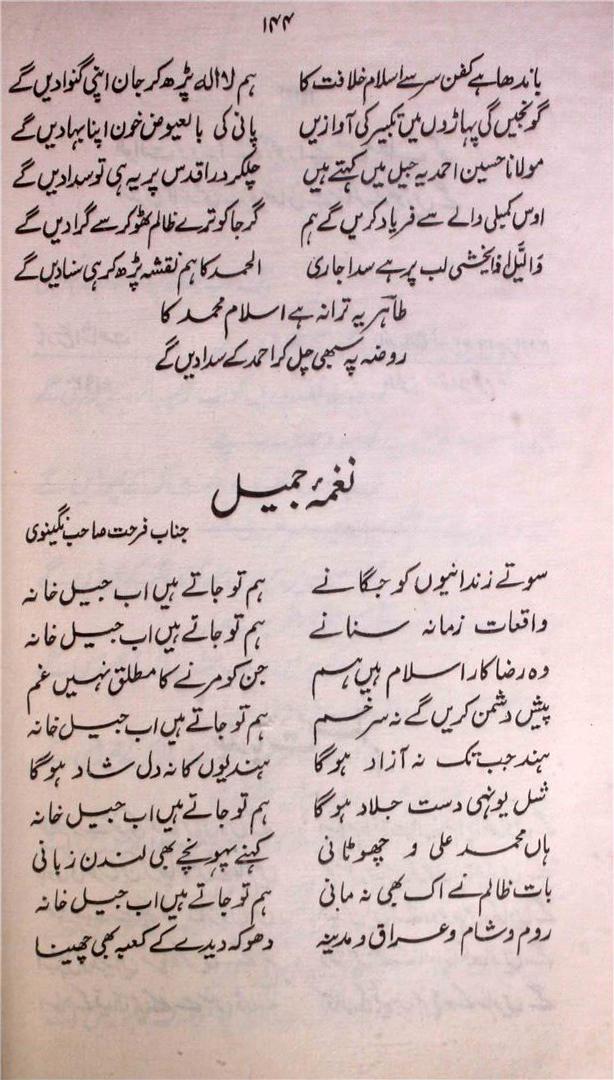 ۱۴۴
باندھا ہے کفن سر سے اسلام خلافت کا ہم لا الہ پڑھ کر جان اپنی گنوادیں گے
گونجیں گی پہاڑوں میں تکبیر کی آوازیں پانی کی بالعیوض خون اپنا بہادیں گے
مولانا حسین احمد یہ جیل میں کہتے ہیں چلکر در اقدس پر یہ ہی تو سدا دیں گے
اوس کمیلی والے سے فریاد کریں گے ہم گرجا کو ترے ظالم ٹھوکر سے گرادیں گے
وَالَّیل اذا یخشی لب پر ہے سدا جاری الحمد کا ہم نقشہ پڑھ کر ہی سنادیں گے
طاہر یہ ترانہ ہے اسلام محمد کا
روضہ پہ سبھی چل کر احمد کے سدا دیں گے
نغمۂ جمیل
جناب فرحت صاحب نگینوی
سوتے زندانیوں کو جگانے ہم تو جاتے ہیں اب جیل خانہ
واقعات زمانہ سنانے ہم تو جاتے ہیں اب جیل خانہ
وہ رضا کار اسلام ہیں ہم جن کو مرنے کا مطلق نہیں غم
پیش دشمن کریں گے نہ سر خم ہم تو جاتے ہیں اب جیل خانہ
ہند جب تک نہ آزاد ہوگا ہندیوں کا نہ دل شاد ہوگا
شل یونہی دست جلاد ہوگا ہم تو جاتے ہیں اب جیل خانہ
ہاں محمد علی و چھوٹانی کہنے پہونچے بھی لندن زبانی
بات ظالم نے اک بھی نہ مانی ہم تو جاتے ہیں اب جیل خانہ
روم و شام و عراق و مدینہ دھوکہ دیدے کے کعبہ بھی چھینا